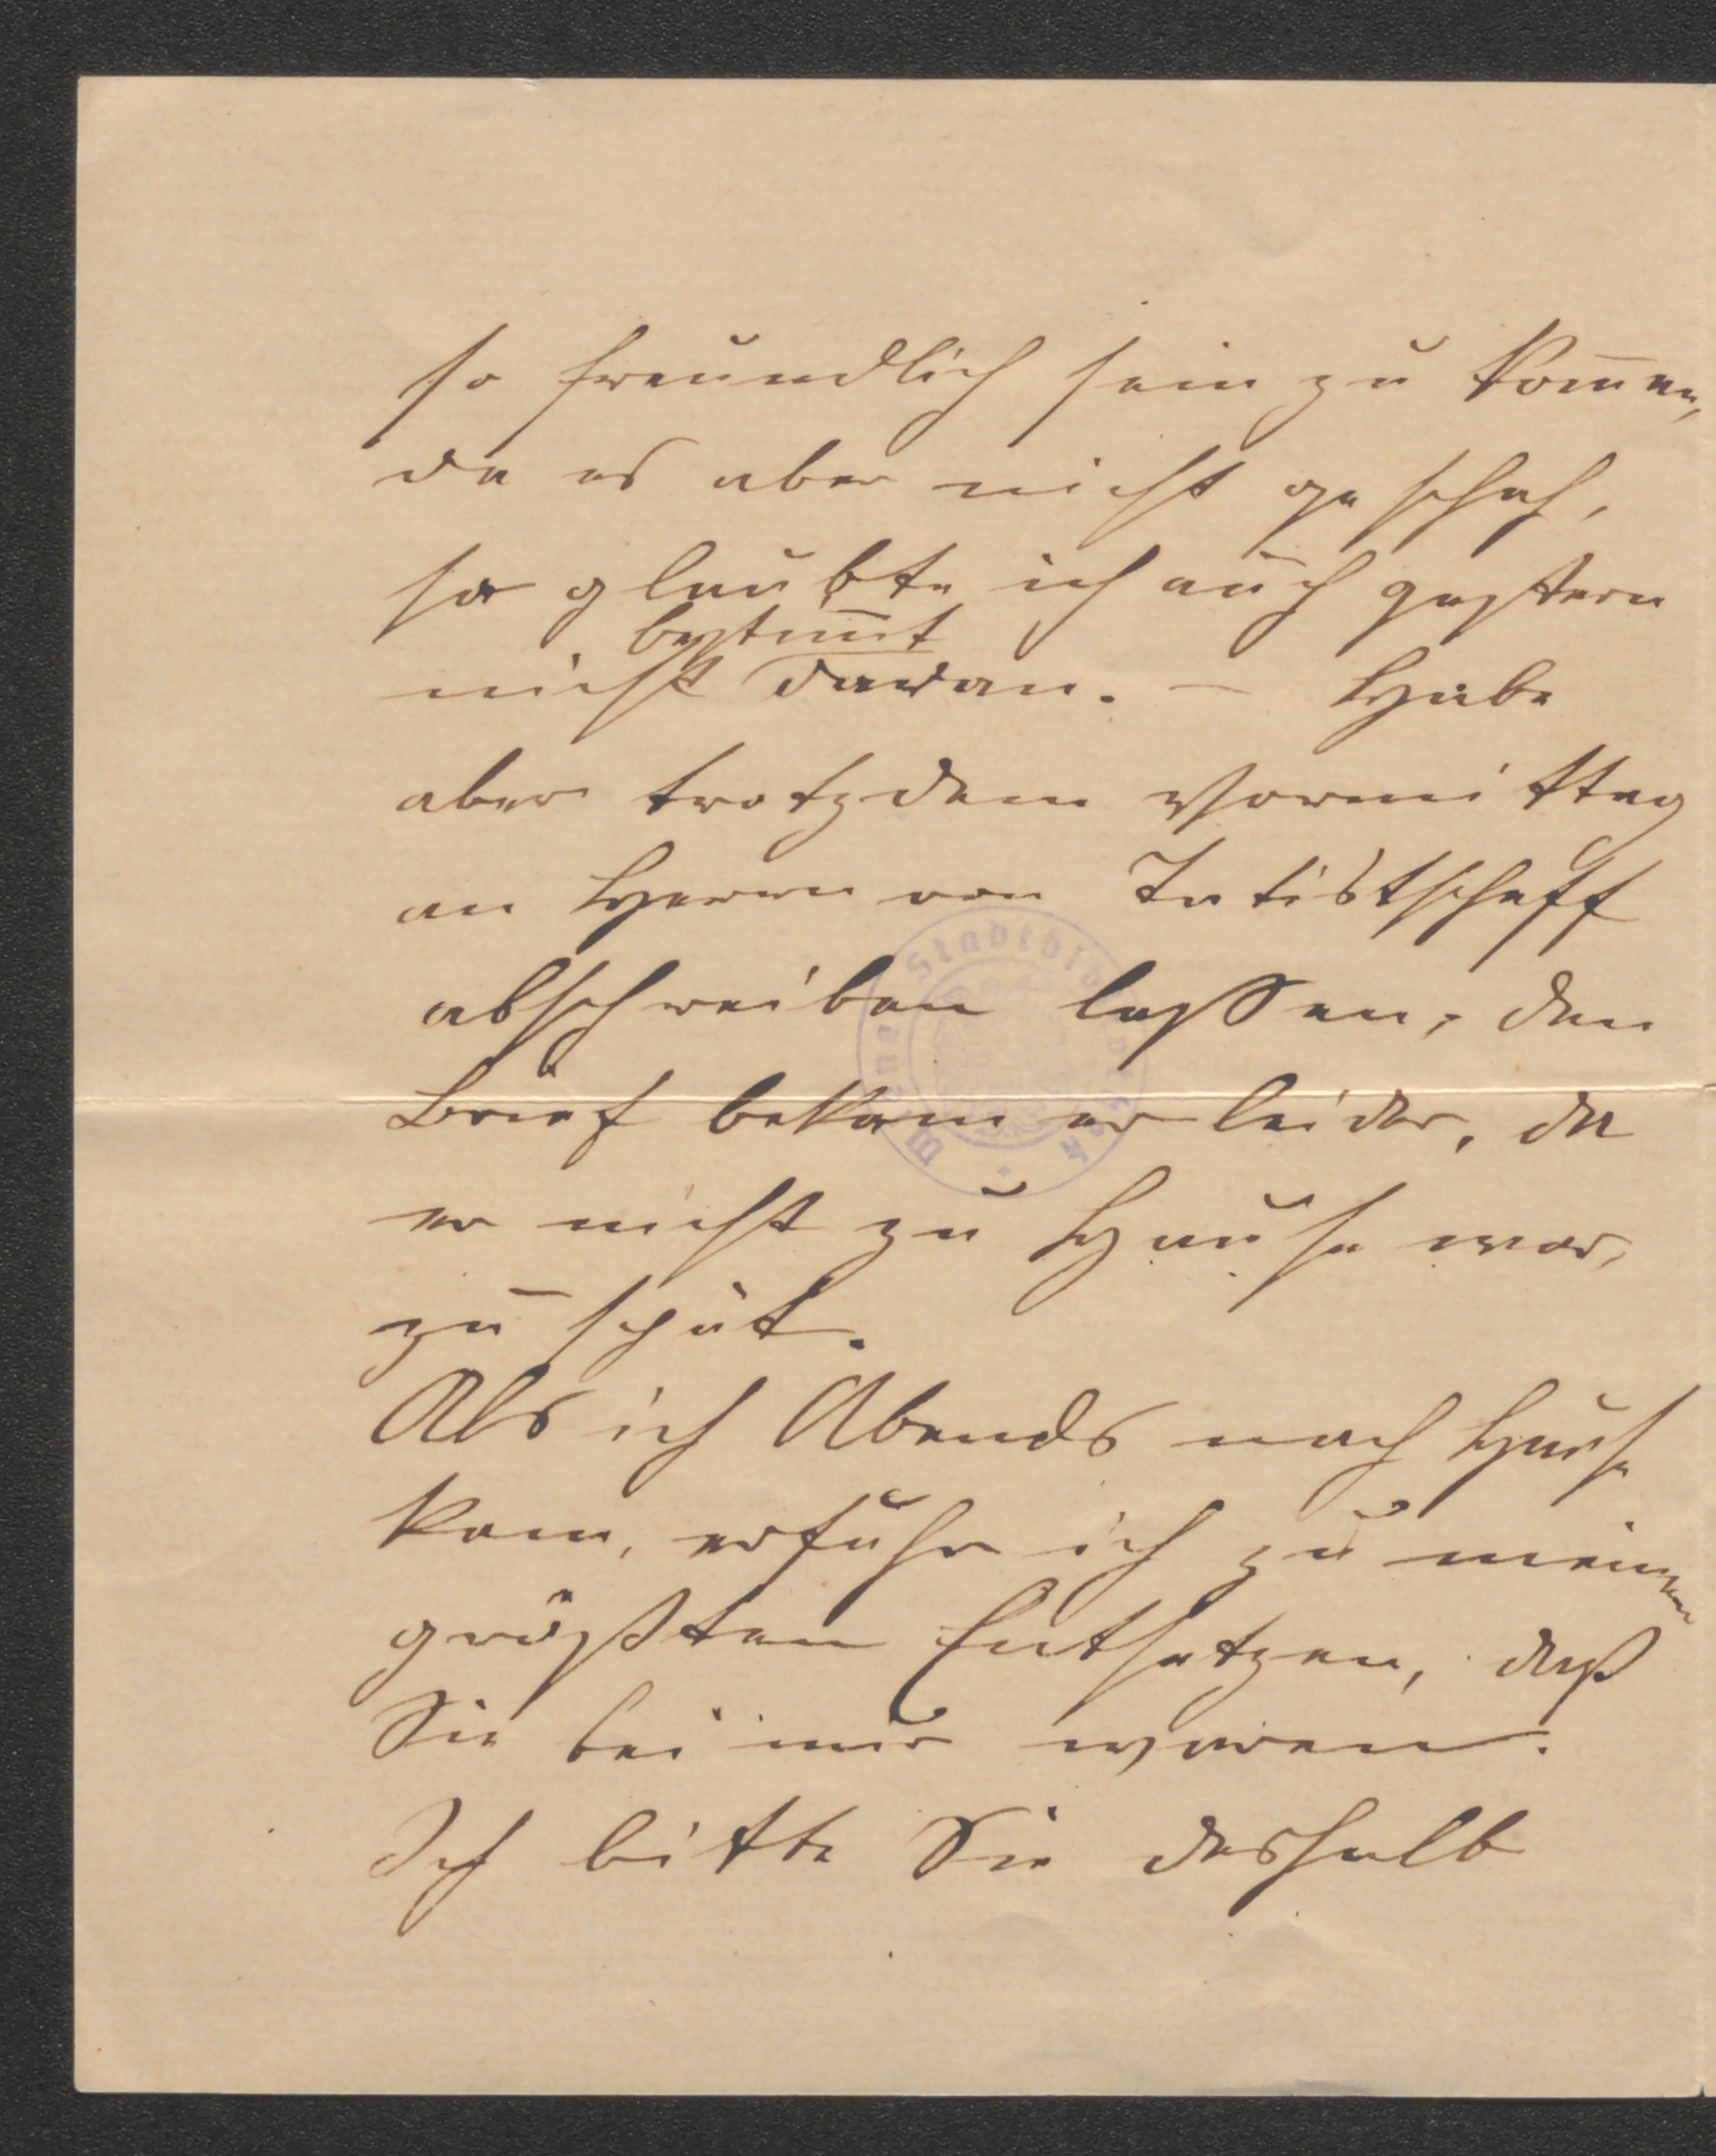 so freundlich sein zu kom̅en,
da es aber nicht geschah,
so glaubte ich auch gestern
bestim̅t
nicht daran. — Habe
aber trotzdem Vormittag
an Herrn von Tatistscheff
abschreiben lassen, den
Brief bekam er leider, da
er nicht zu Hause war,
zu spät.
Als ich Abends nach Hause
kam, erfuhr ich zu meinem
größten Entsetzen, daß
Sie bei mir waren.
Ich bitte Sie deshalb